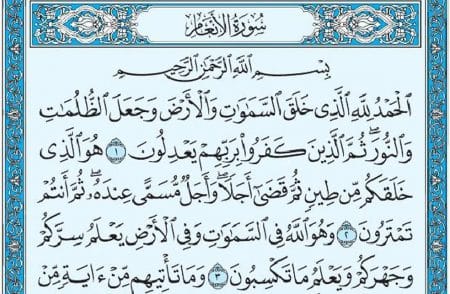 سُورَةُ الأَنْعَامِ
بِسْمِ ٱللَّهِ ٱلرَّحْمَٰنِ ٱلرَّحِيمِ
ٱلْحَمْدُ لِلَّهِ ٱلَّذِى خَلَقَ ٱلسَّمَٰوَٰتِ وَٱلْأَرْضَ وَجَعَلَ ٱلظُّلُمَٰتِ
وَٱلنُّورَ ۖ ثُمَّ ٱلَّذِينَ كَفَرُوا۟ بِرَبِّهِمْ يَعْدِلُونَ ١ هُوَ ٱلَّذِى
خَلَقَكُم مِّن طِينٍ ثُمَّ قَضَىٰٓ أَجَلًا ۖ وَأَجَلٌ مُّسَمًّى عِندَهُۥ ۖ ثُمَّ أَنتُمْ
تَمْتَرُونَ ٢ وَهُوَ ٱللَّهُ فِى ٱلسَّمَٰوَٰتِ وَفِى ٱلْأَرْضِ ۖ يَعْلَمُ سِرَّكُمْ
وَجَهْرَكُمْ وَيَعْلَمُ مَا تَكْسِبُونَ ٣ وَمَا تَأْتِيهِم مِّنْ ءَايَةٍ مِّنْ